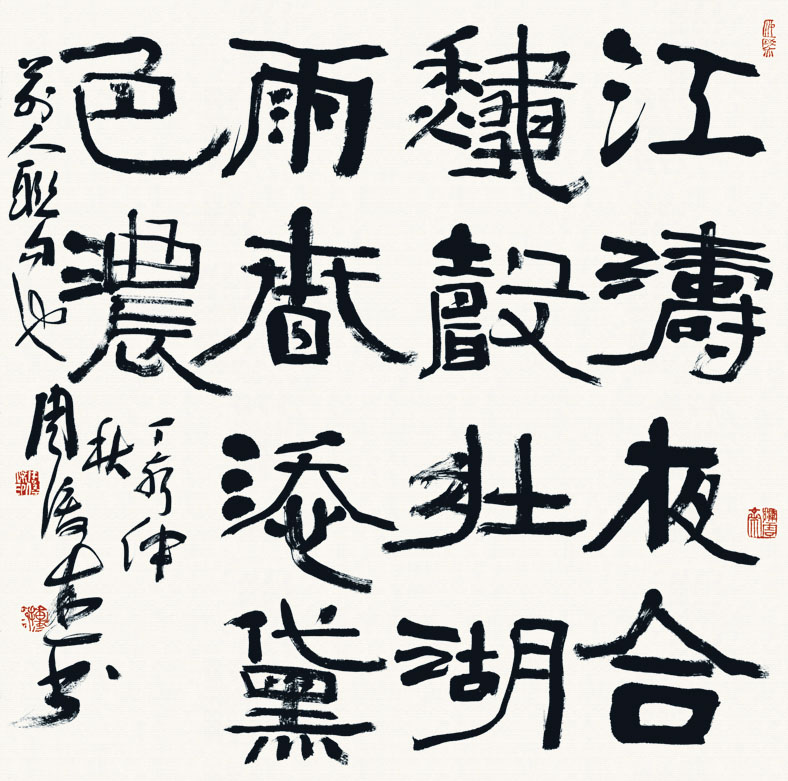 江濤夜合
龝聲壯湖
雨春添黛
色濃
前人聯句也
丁酉仲
秋
周俊杰書